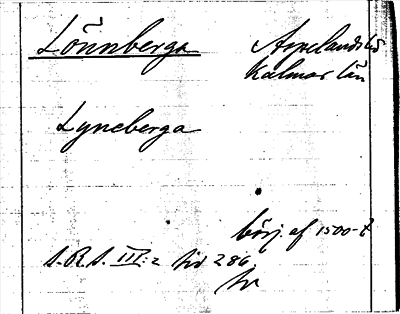 Lönnberga
Aspelands hd
Kalmar län
Lyneberga
börj. af 1500-t
S.R.S. III:2 sid 286.